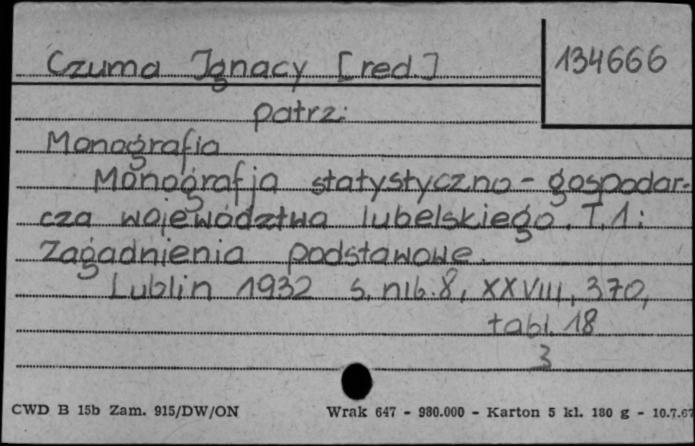 Czuma Ignacy [red.]
134666
patrz:
Monografia
Monografja statystyczno-gospodar-
cza województwa lubelskiego. T. 1:
Zagadnienia podstawowe.
Lublin 1932 s. nlb. 8, XXVIII, 370,
tabl. 18
3
CWD B 15b Zam. 915/DW/ON Wrak 647 - 980.000 - Karton 5 kl. 180 g - 10.7.67